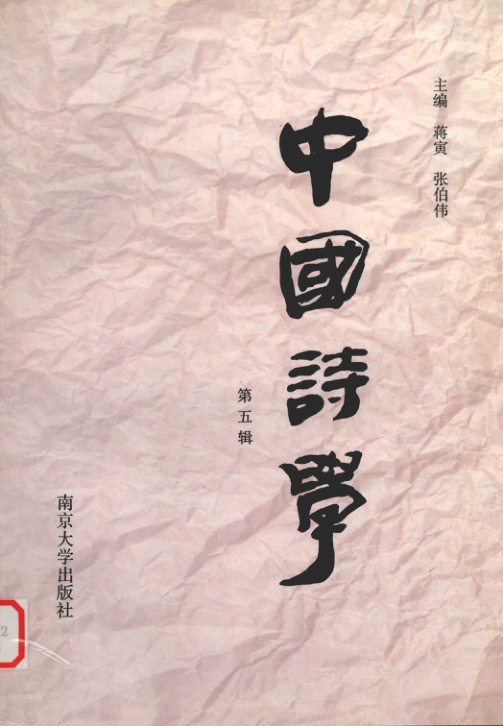 主编 蒋寅 张伯伟
中國詩學
第五辑
南京大学出版社
2